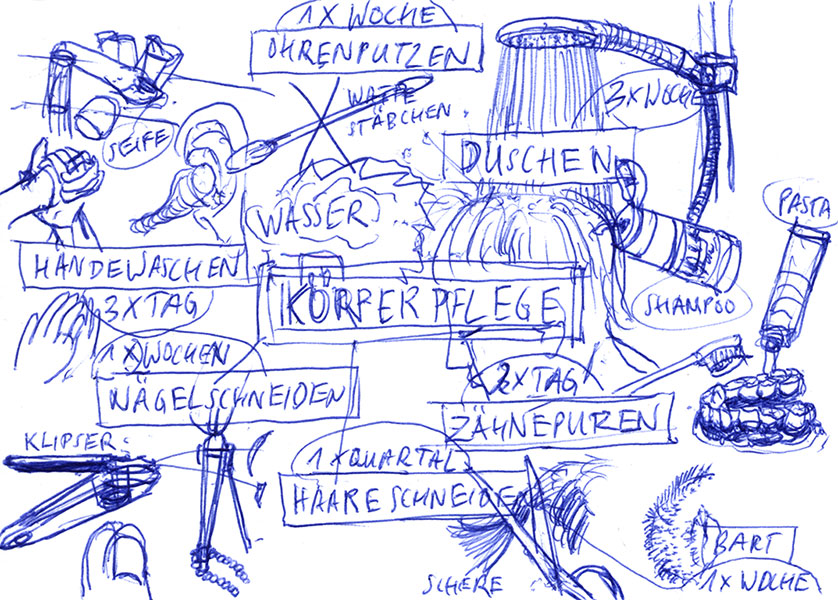 1 X WOCHE
OHRENPUTZEN
WATTE
STÄBCHEN
3 X WOCHE
DUSCHEN
SEIFE
WASSER
PASTA
HÄNDEWASCHEN
3 X TAG
KÖRPERPFLEGE
SHAMPOO
1 X WOCHEN
NÄGELSCHNEIDEN
2 X TAG
ZÄHNEPUREN
KLIPSER
1 X QUARTAL
HAARESCHNEIDEN
BART
1 X WOCHE
SCHERE